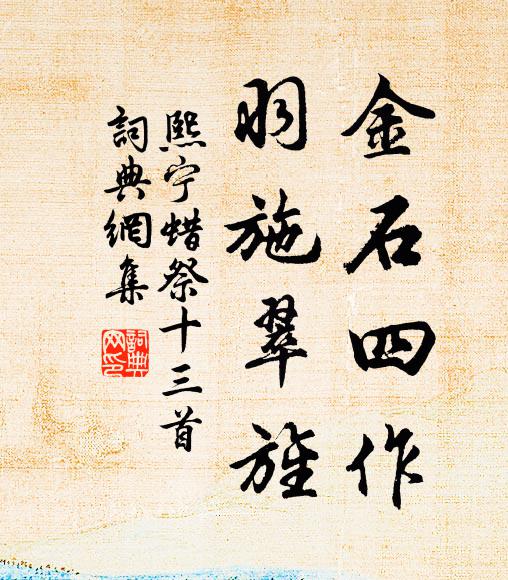 金石四作
羽施翠旌
熙宁蜡祭十三首
詞典網集
詞典
网印